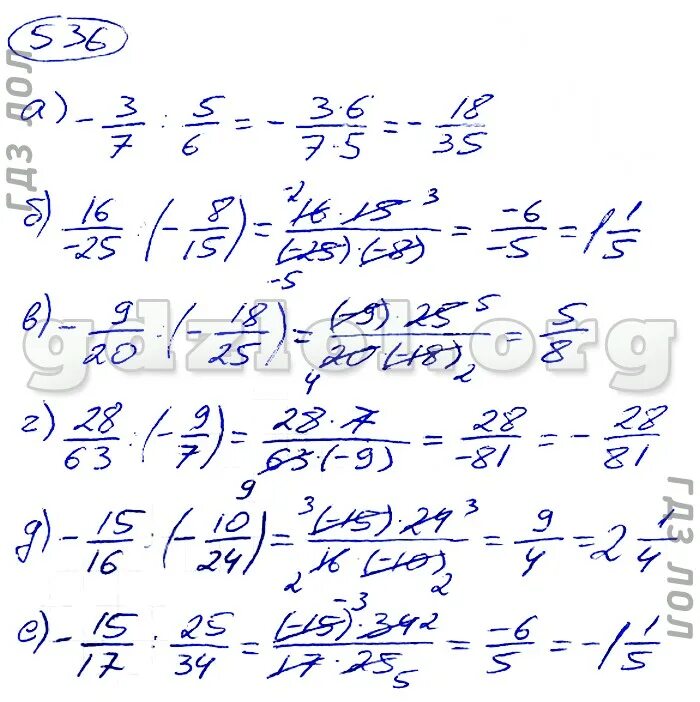 536
а) -3/7 : 5/6 = -3·6/7·5 = -18/35
б) 16/-25 : (-8/15) = -2 16·15 3/-5 (-25)·(-8) = -6/-5 = 1 1/5
в) -9/20 : (-18/25) = (-9)·25 5/4 20·(-18) 2 = 5/8
г) 28/63 : (-9/7) = 28·7/9 63·(-9) = 28/-81 = -28/81
д) -15/16 : (-10/24) = 3 (-15)·24 3/2 16·(-10) 2 = 9/4 = 2 1/4
е) -15/17 : 25/34 = (-15) -3·34 2/17·25 5 = -6/5 = -1 1/5
гдз лол
gdzlol.org
гдз лол